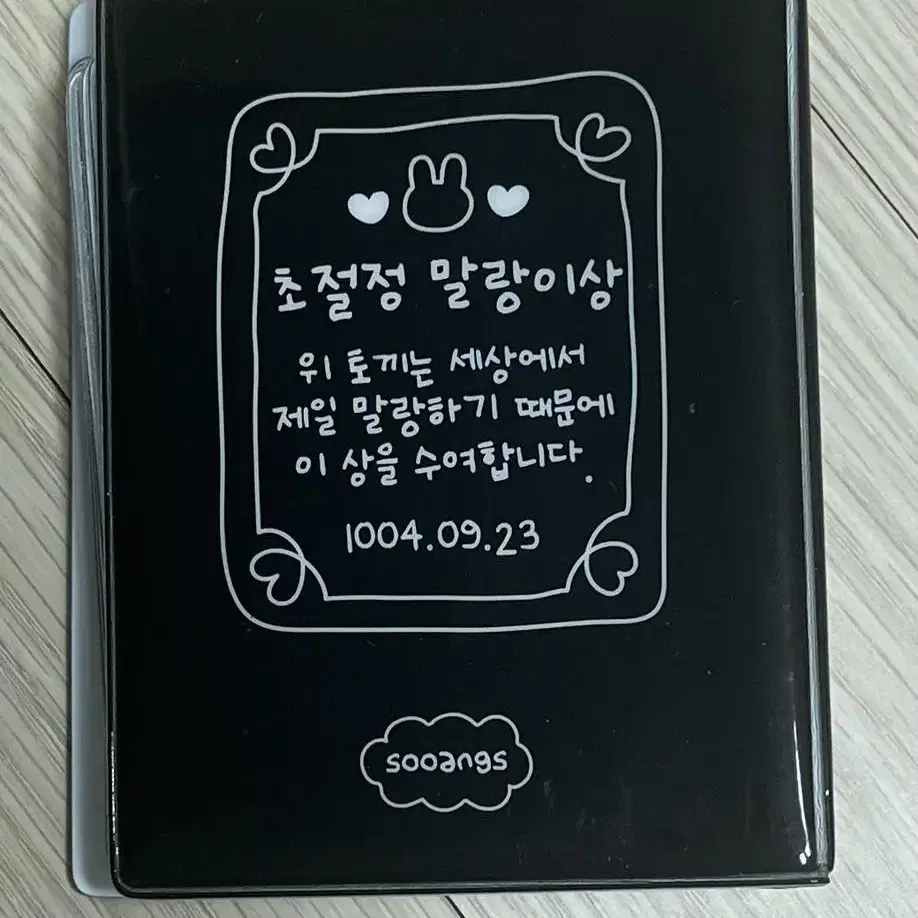 초절정 말랑이상
위 토끼는 세상에서
제일 말랑하기 때문에
이 상을 수여합니다.
1004.09.23
sooangs